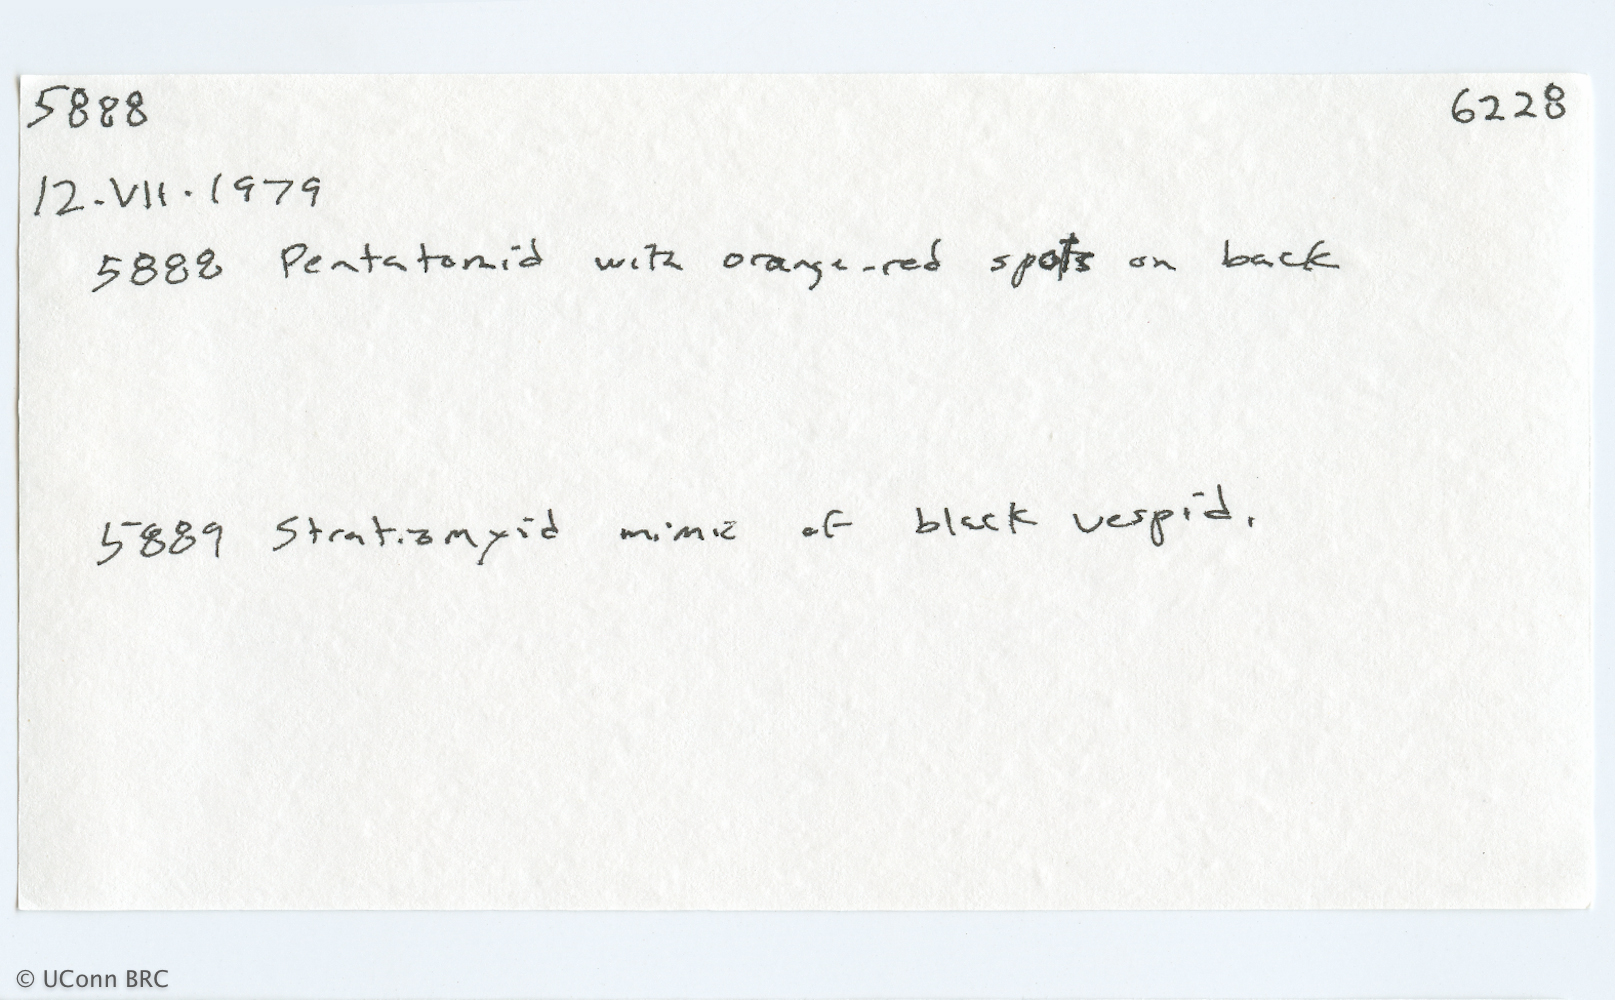 5888 6228
12-VII.1979
5888 Pentatomid with orange-red spots on back
5889 Stratiomyid mimic of black vespid.
© UConn BRC